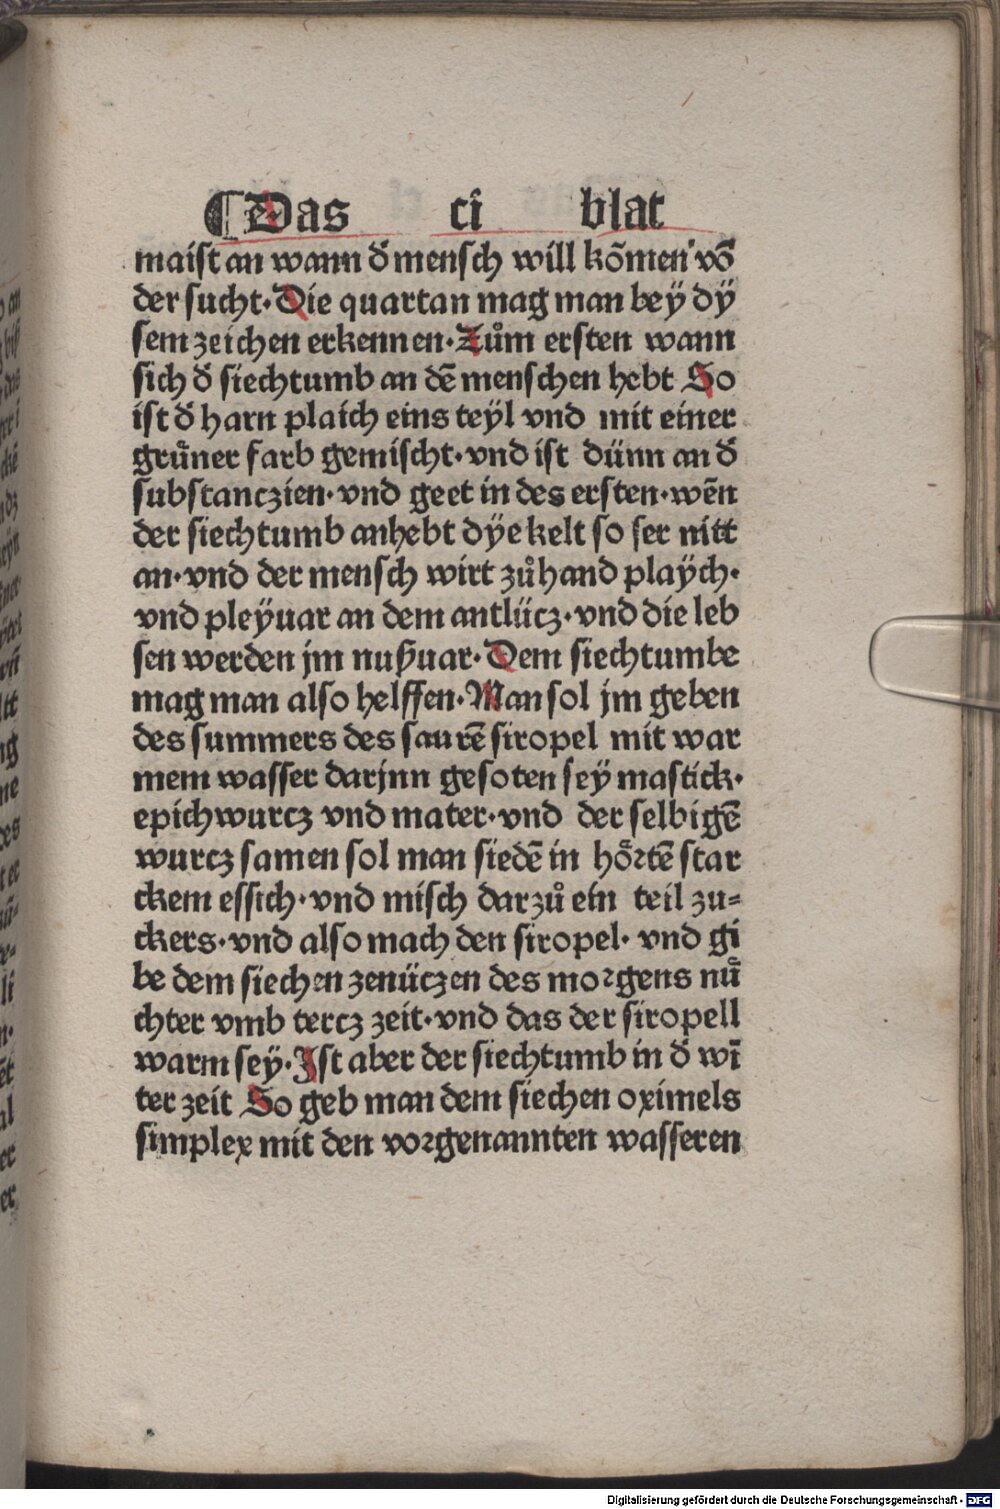 ¶Das ci blat
maist an wann d̕ mensch will kõmen võ
der sucht·Die quartan mag man beÿ dÿ
sem zeichen erkennen·Zům ersten wann
sich d̕ siechtumb an dẽ menschen hebt So
ist d̕ harn plaich eins teÿl vnd mit einer
grůner farb gemischt·vnd ist dünn an d̕
substanczien·vnd geet in des ersten·wẽn
der siechtumb anhebt dÿe kelt so ser nitt
an·vnd der mensch wirt zůhand plaÿch·
vnd pleÿuar an dem antlücz·vnd die leb
sen werden jm nußuar·Dem siechtumbe
mag man also helffen·Man sol jm geben
des summers des saurẽ siropel mit war
mem wasser darjnn gesoten seÿ mastick·
epichwurcz vnd mater·vnd der selbigẽ
wurcz samen sol man siedẽ in hoͤrtẽ star
ckem essich·vnd misch darzů ein teil zu⸗
ckers·vnd also mach den siropel·vnd gi
be dem siechen zenüczen des morgens nuͤ
chter vmb tercz zeit·vnd das der siropell
warm seÿ·Ist aber der siechtumb in d̕ wī
ter zeit So geb man dem siechen oximels
simplex mit den vorgenannten wasseren
Digitalisierung gefördert durch die Deutsche Forschungsgemeinschaft - DFG